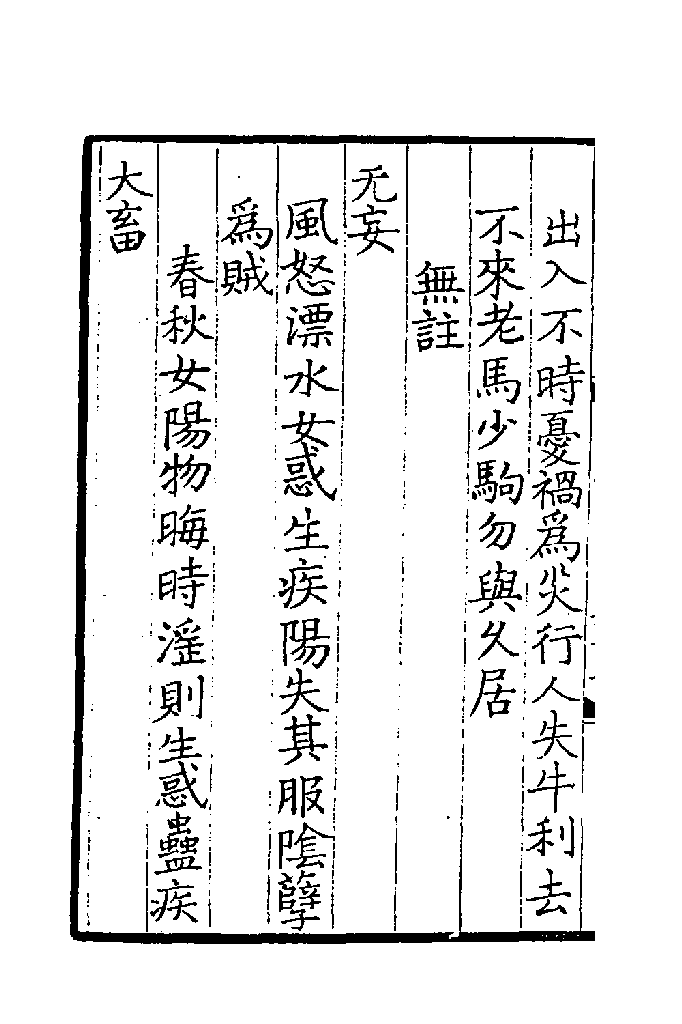 出入不時憂禍為災行人失牛利去
不來老馬少駒勿與久居
無註
无妄
風怒漂水女惑生疾陽失其服陰孽
為賊
春秋女陽物晦時滛則生惑蠱疾
大畜